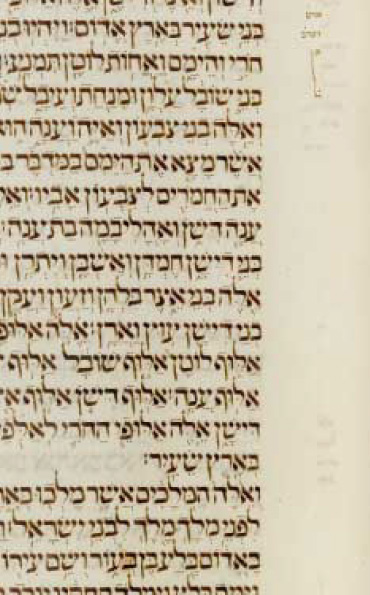 בני שעיר בארץ אדום ויהיו בנ
חרי והימם ואחות לוטן תמנע
בני שובל עלון ומנחת ועיבל
ואלה בני צבעון ואיה וענה הוא
אשר מצא את הימם במדבר
את החמרים לצבעון אביו ואל
ענה דשן ואהליבמה בת ענה
בני דישן חמדן ואשבן ויתרן
אלה בני אצר בלהן וזעון ועקן
בני דישן עוץ וארן אלה אלופי
אלוף לוטן אלוף שובל אלוף
אלוף ענה אלוף דשן אלוף
דישן אלה אלופי החרי לאלפי
בארץ שעיר
ואלה המלכים אשר מלכו באר
לפני מלך מלך לבני ישראל
באדום בלע בן בעור ושם עירו